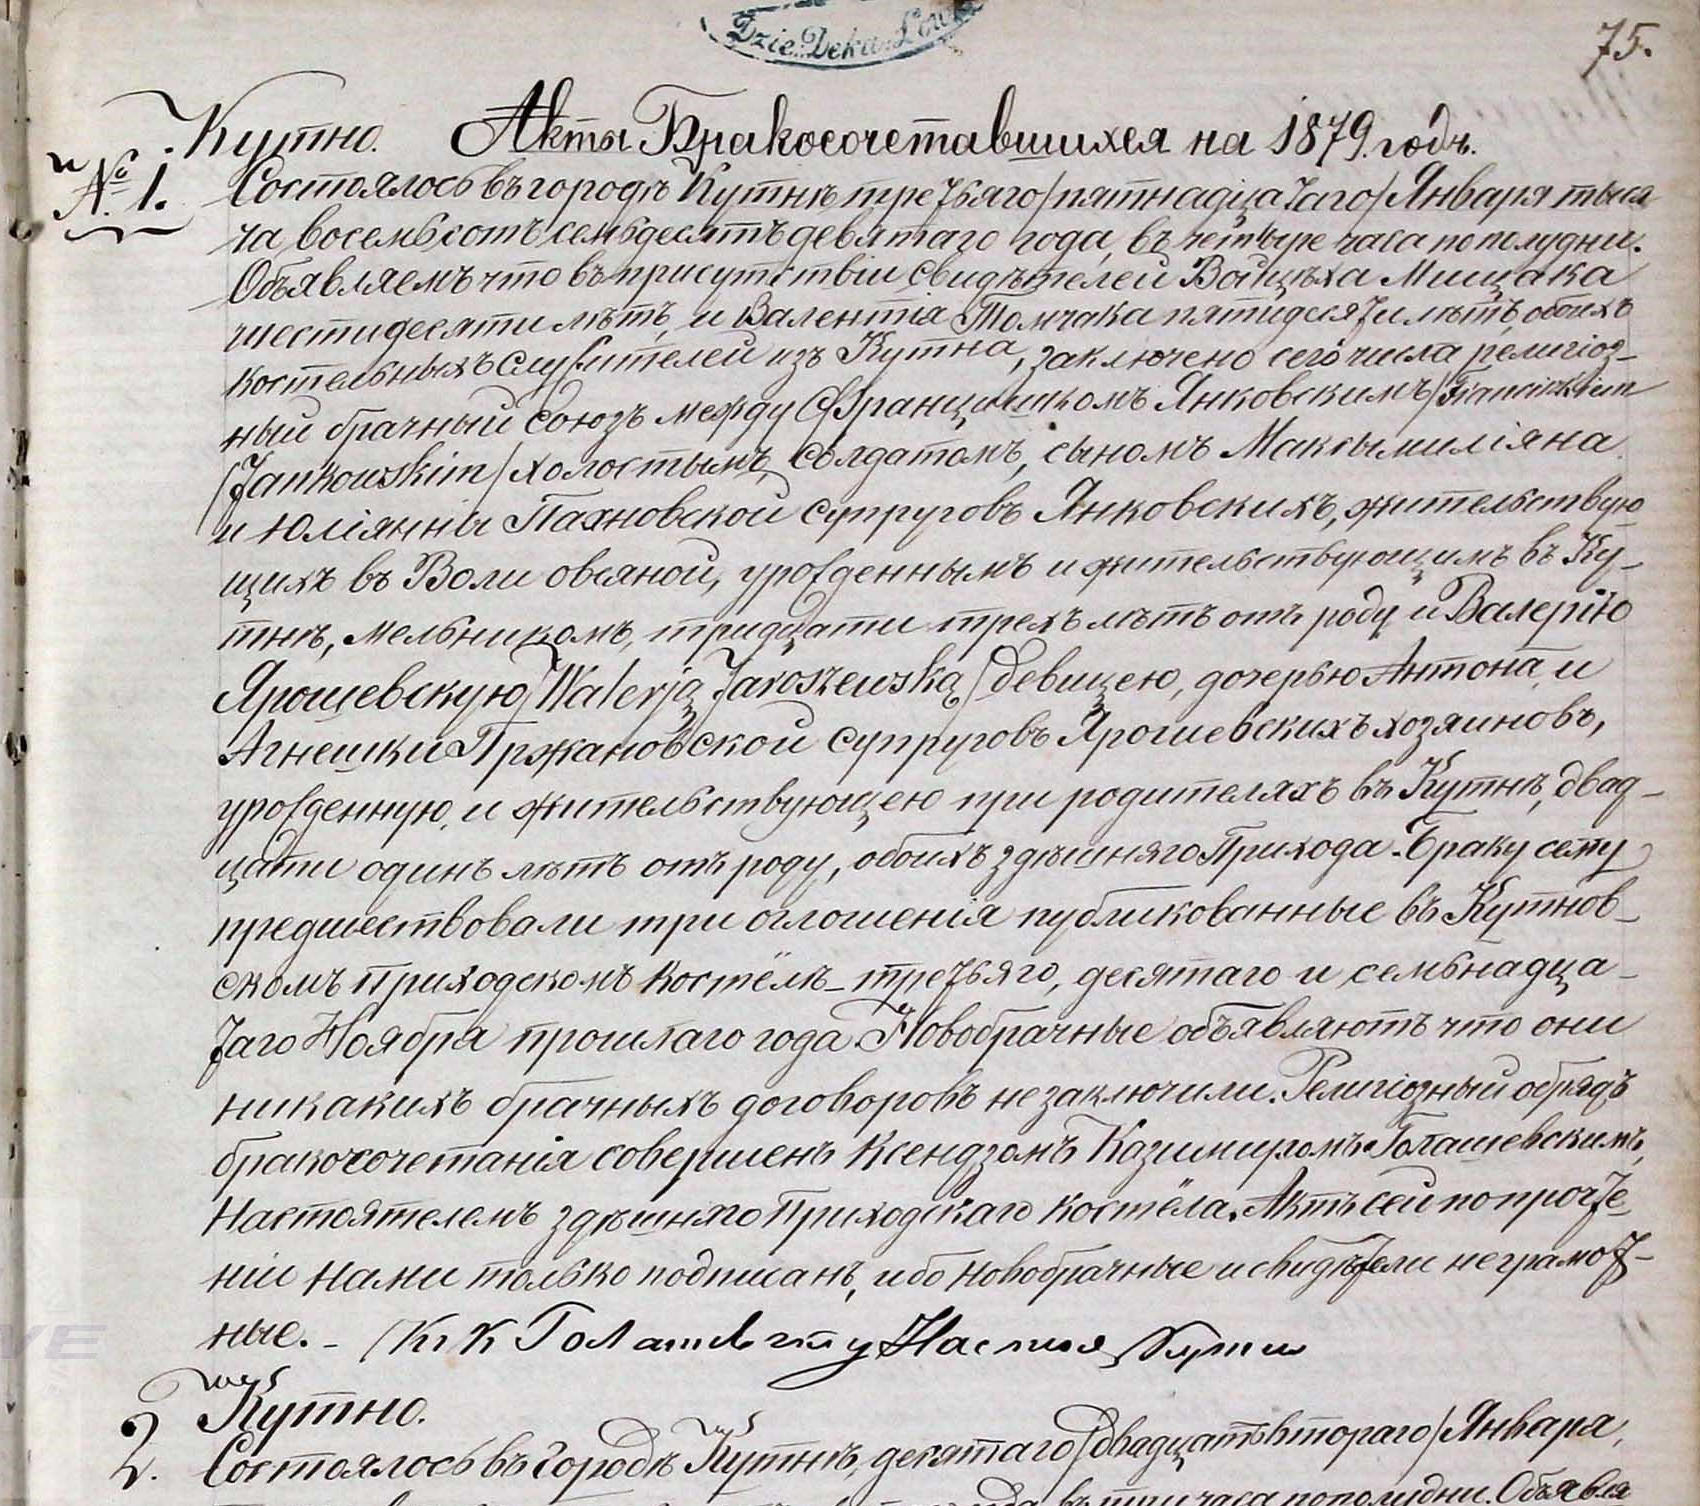 Dzie. Deka. Łow
75.
Кутно. Акты Бракосочетавшихся на 1879. годъ.
№ 1. Состоялось въ городѣ Кутнѣ третьяго /пятнадцатаго/ Января тыся
ча восемьсотъ семьдесятъ девятаго года, въ четыре часа по полудни.
Объявляемъ что въ присутствіи свидѣтелей Войцѣха Мищака
шестидесяти лѣтъ, и Валентія Томчака пятидесяти лѣтъ, обоихъ
костельныхъ служителей изъ Кутна, заключено сего числа религіоз-
ный брачный союзъ между Францишкомъ Янковскимъ /Franciszkiem
Jankowskim/ холостымъ, солдатомъ, сыномъ Максымиліяна
и Юліянны Пахновской супруговъ Янковскихъ, жительствую
щихъ въ Воли овсяной, урожденнымъ и жительствующимъ въ Ку-
тнѣ, мельникомъ, тридцати трехъ лѣтъ отъ роду и Валерію
Ярошевскую /Walerją Jaroszewską/ девицею, дочерью Антона и
Агнешки Гржановской супруговъ Ярошевскихъ хозяиновъ,
урожденную, и жительствующею при родителяхъ въ Кутнѣ, двад-
цати одинъ лѣтъ отъ роду, обоихъ здѣшняго Прихода. Браку сему
предшествовали три оглошенія публикованные въ Кутнов-
скомъ приходскомъ костёлѣ третьяго, десятаго и семьнадца-
таго Ноября прошлаго года. Новобрачные объявляютъ что они
никакихъ брачныхъ договоровъ не заключили. Религіозный обрядъ
бракосочетанія совершенъ Ксендзомъ Казимиромъ Голашевскимъ,
Настоятелемъ здѣшняго Приходскаго костёла. Актъ сей по прочте-
ніи нами только подписанъ, ибо новобрачные и свидѣтели неграмот-
ные. -
Кутно.
2. Состоялось въ Городѣ Кутнѣ, десятаго /двадцать втораго/ Января,
часа по полудни. Объявля